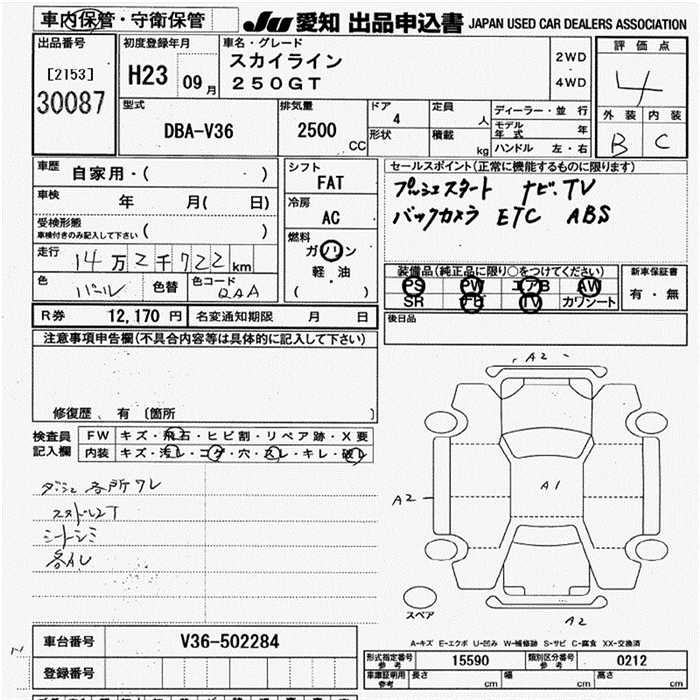 車内保管・守衛保管
JU 愛知 出品申込書 JAPAN USED CAR DEALERS ASSOCIATION
出品番号
[2153]
30087
初度登録年月
H23 09月
車名・グレード
スカイライン
250GT
2WD
4WD
評価点
4
外装 内装
B C
型式
DBA-V36
排気量
2500 CC
ドア
4
形状
定員
人
積載
kg
ディーラー・並 行
モデル年式 年
ハンドル 左・右
車歴
自家用・( )
車検
年 月( 日)
受検形態
車検付きのみ記入して下さい ( )
走行
14万2千722km
色
パール
色替
色コード
QAA
シフト
FAT
冷房
AC
燃料
ガソリン
軽・油
( )
セールスポイント(正常に機能するものに限ります)
プッシュスタート ナビ.TV
バックカメラ ETC ABS
装備品(純正品に限り○をつけてください)
PS PW エアB AW
SR ナビ TV カワシート
新車保証書
有・無
後日品
R券 12,170 円 名変通知期限 月 日
注意事項申告欄(不具合内容等は具体的に記入して下さい)
修復歴 有〔箇所 〕
検査員記入欄
FW キズ・飛石・ヒビ割・リペア跡・X要
内装 キズ・汚レ・コゲ・穴・スレ・キレ・破レ
ダッシュ各所ワレ
シートシミ
A2
A2
A1
A2
スペア
A-キズ E-エクボ U-凹み W-補修跡 S-サビ C-腐食 XX-交換済
車台番号 V36-502284
登録番号
型式指定番号 参考 15590 類別区分番号 参考 0212
車庫証明用 参考 長さ cm 幅 cm 高さ cm